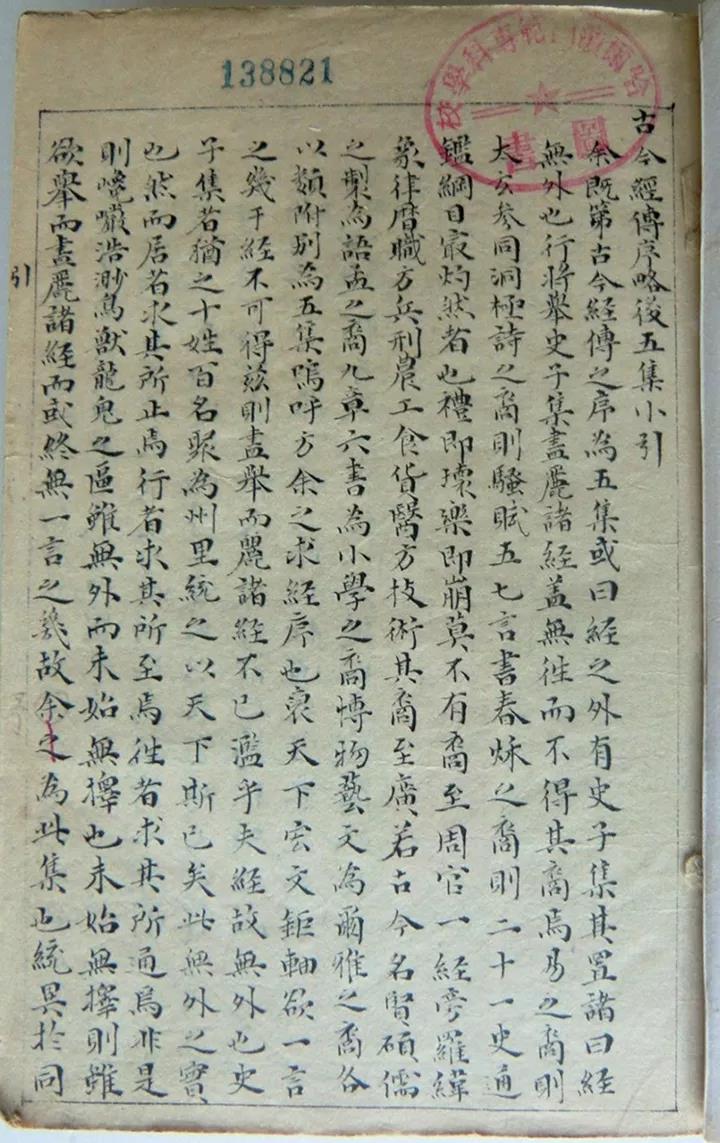 138821
哈爾濱師範專科學校
圖書
古今經傳序略後五集小引
余既第古今經傳之序為五集或曰經之外有史子集其置諸曰經
無外也行將舉史子集盡麗諸經蓋無徃而不得其裔焉易之裔則
太玄參同洞極詩之裔則騷賦五七言書春秌之裔則二十一史通
鑑綱目最灼然者也禮即壞樂即崩莫不有裔至周官一經旁羅緯
象律曆職方兵刑農工食貨醫方技術其裔至廣若古今名賢碩儒
之製為語孟之裔九章六書為小學之裔博物藝文為爾雅之裔各
以類附別為五集嗚呼方余之求經序也裒天下宏文鉅軸欲一言
之幾于經不可得茲則盡舉而麗諸經不已濫乎夫經故無外也史
子集若猶之十姓百名聚為州里統之以天下斯已矣此無外之實
也然而居者求其所止焉行者求其所至焉徃者求其所通焉非是
則嶢巖浩渺鳥獸龍鬼之區雖無外而未始無擇也未始無擇則雖
欲舉而盡麗諸經而或終無一言之幾故余之為此集也統異於同
引